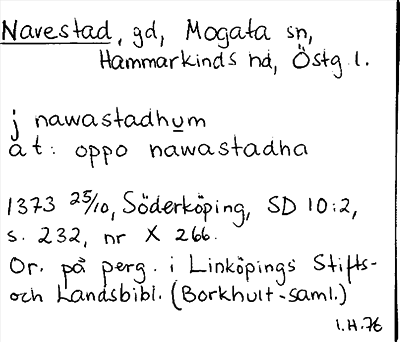 Navestad, gd, Mogata sn,
Hammarkinds hd, Östg l.
j nawastadhum
at: oppo nawastadha
1373 25/10, Söderköping, SD 10:2,
s. 232, nr X 266.
Or. på perg. i Linköpings Stifts-
och Landsbibl. (Borkhult-saml.)
I.H.76